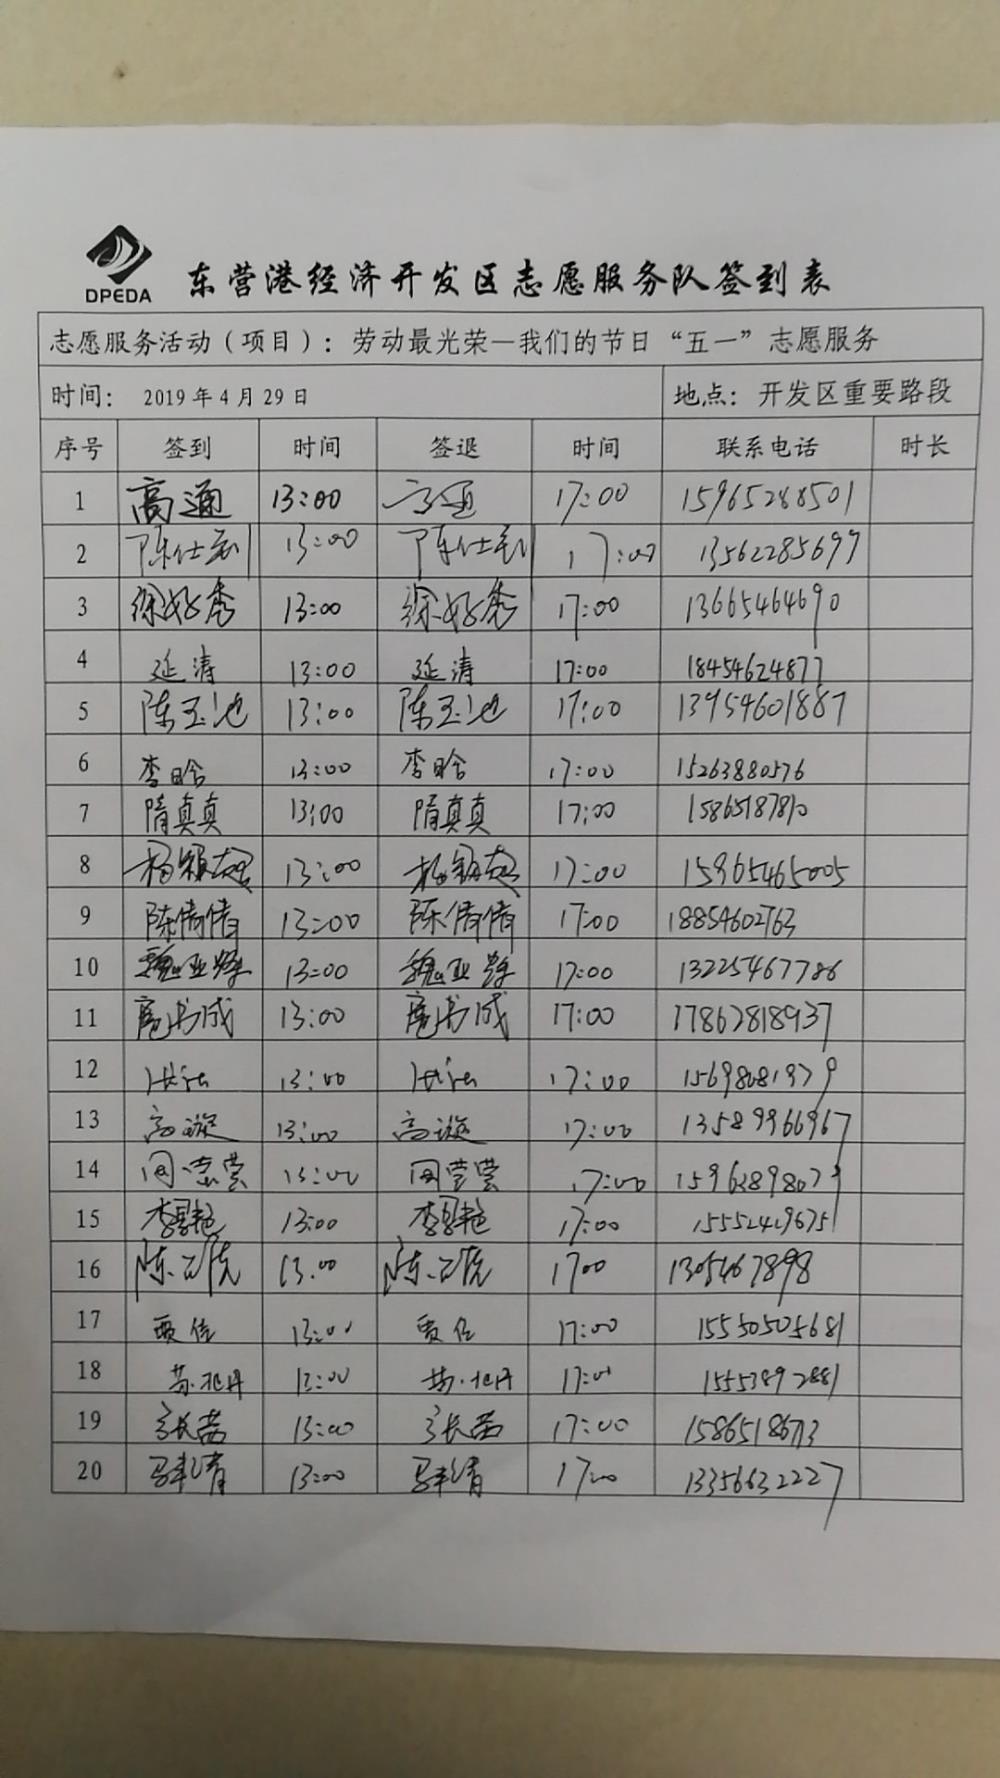 DPEDA
东营港经济开发区志愿服务队签到表
志愿服务活动（项目）：劳动最光荣—我们的节日“五一”志愿服务
时间： 2019年4月29日 地点：开发区重要路段
序号 签到 时间 签退 时间 联系电话 时长
1 高通 13:00 高通 17:00 15965288501
2 陈仕利 13:00 陈仕利 17:00 13562285697
3 徐好秀 13:00 徐好秀 17:00 13665464690
4 延涛 13:00 延涛 17:00 18454624877
5 陈玉池 13:00 陈玉池 17:00 13954601887
6 李晗 13:00 李晗 17:00 15263880576
7 隋真真 13:00 隋真真 17:00 15865187810
8 杨颖超 13:00 杨颖超 17:00 15965465005
9 陈倩倩 13:00 陈倩倩 17:00 18854602763
10 13:00 17:00 13225467786
11 庞书成 13:00 庞书成 17:00 17862818937
12 13:00 17:00
13 高漩 13:00 高漩 17:00 13589966967
14 13:00 17:00
15 13:00 17:00
16 13:00 1700
17 贾佳 13:00 贾佳 17:00 15550505681
18 13:00 17:00
19 张茜 13:00 张茜 17:00
20 13:00 17:00 13356632227